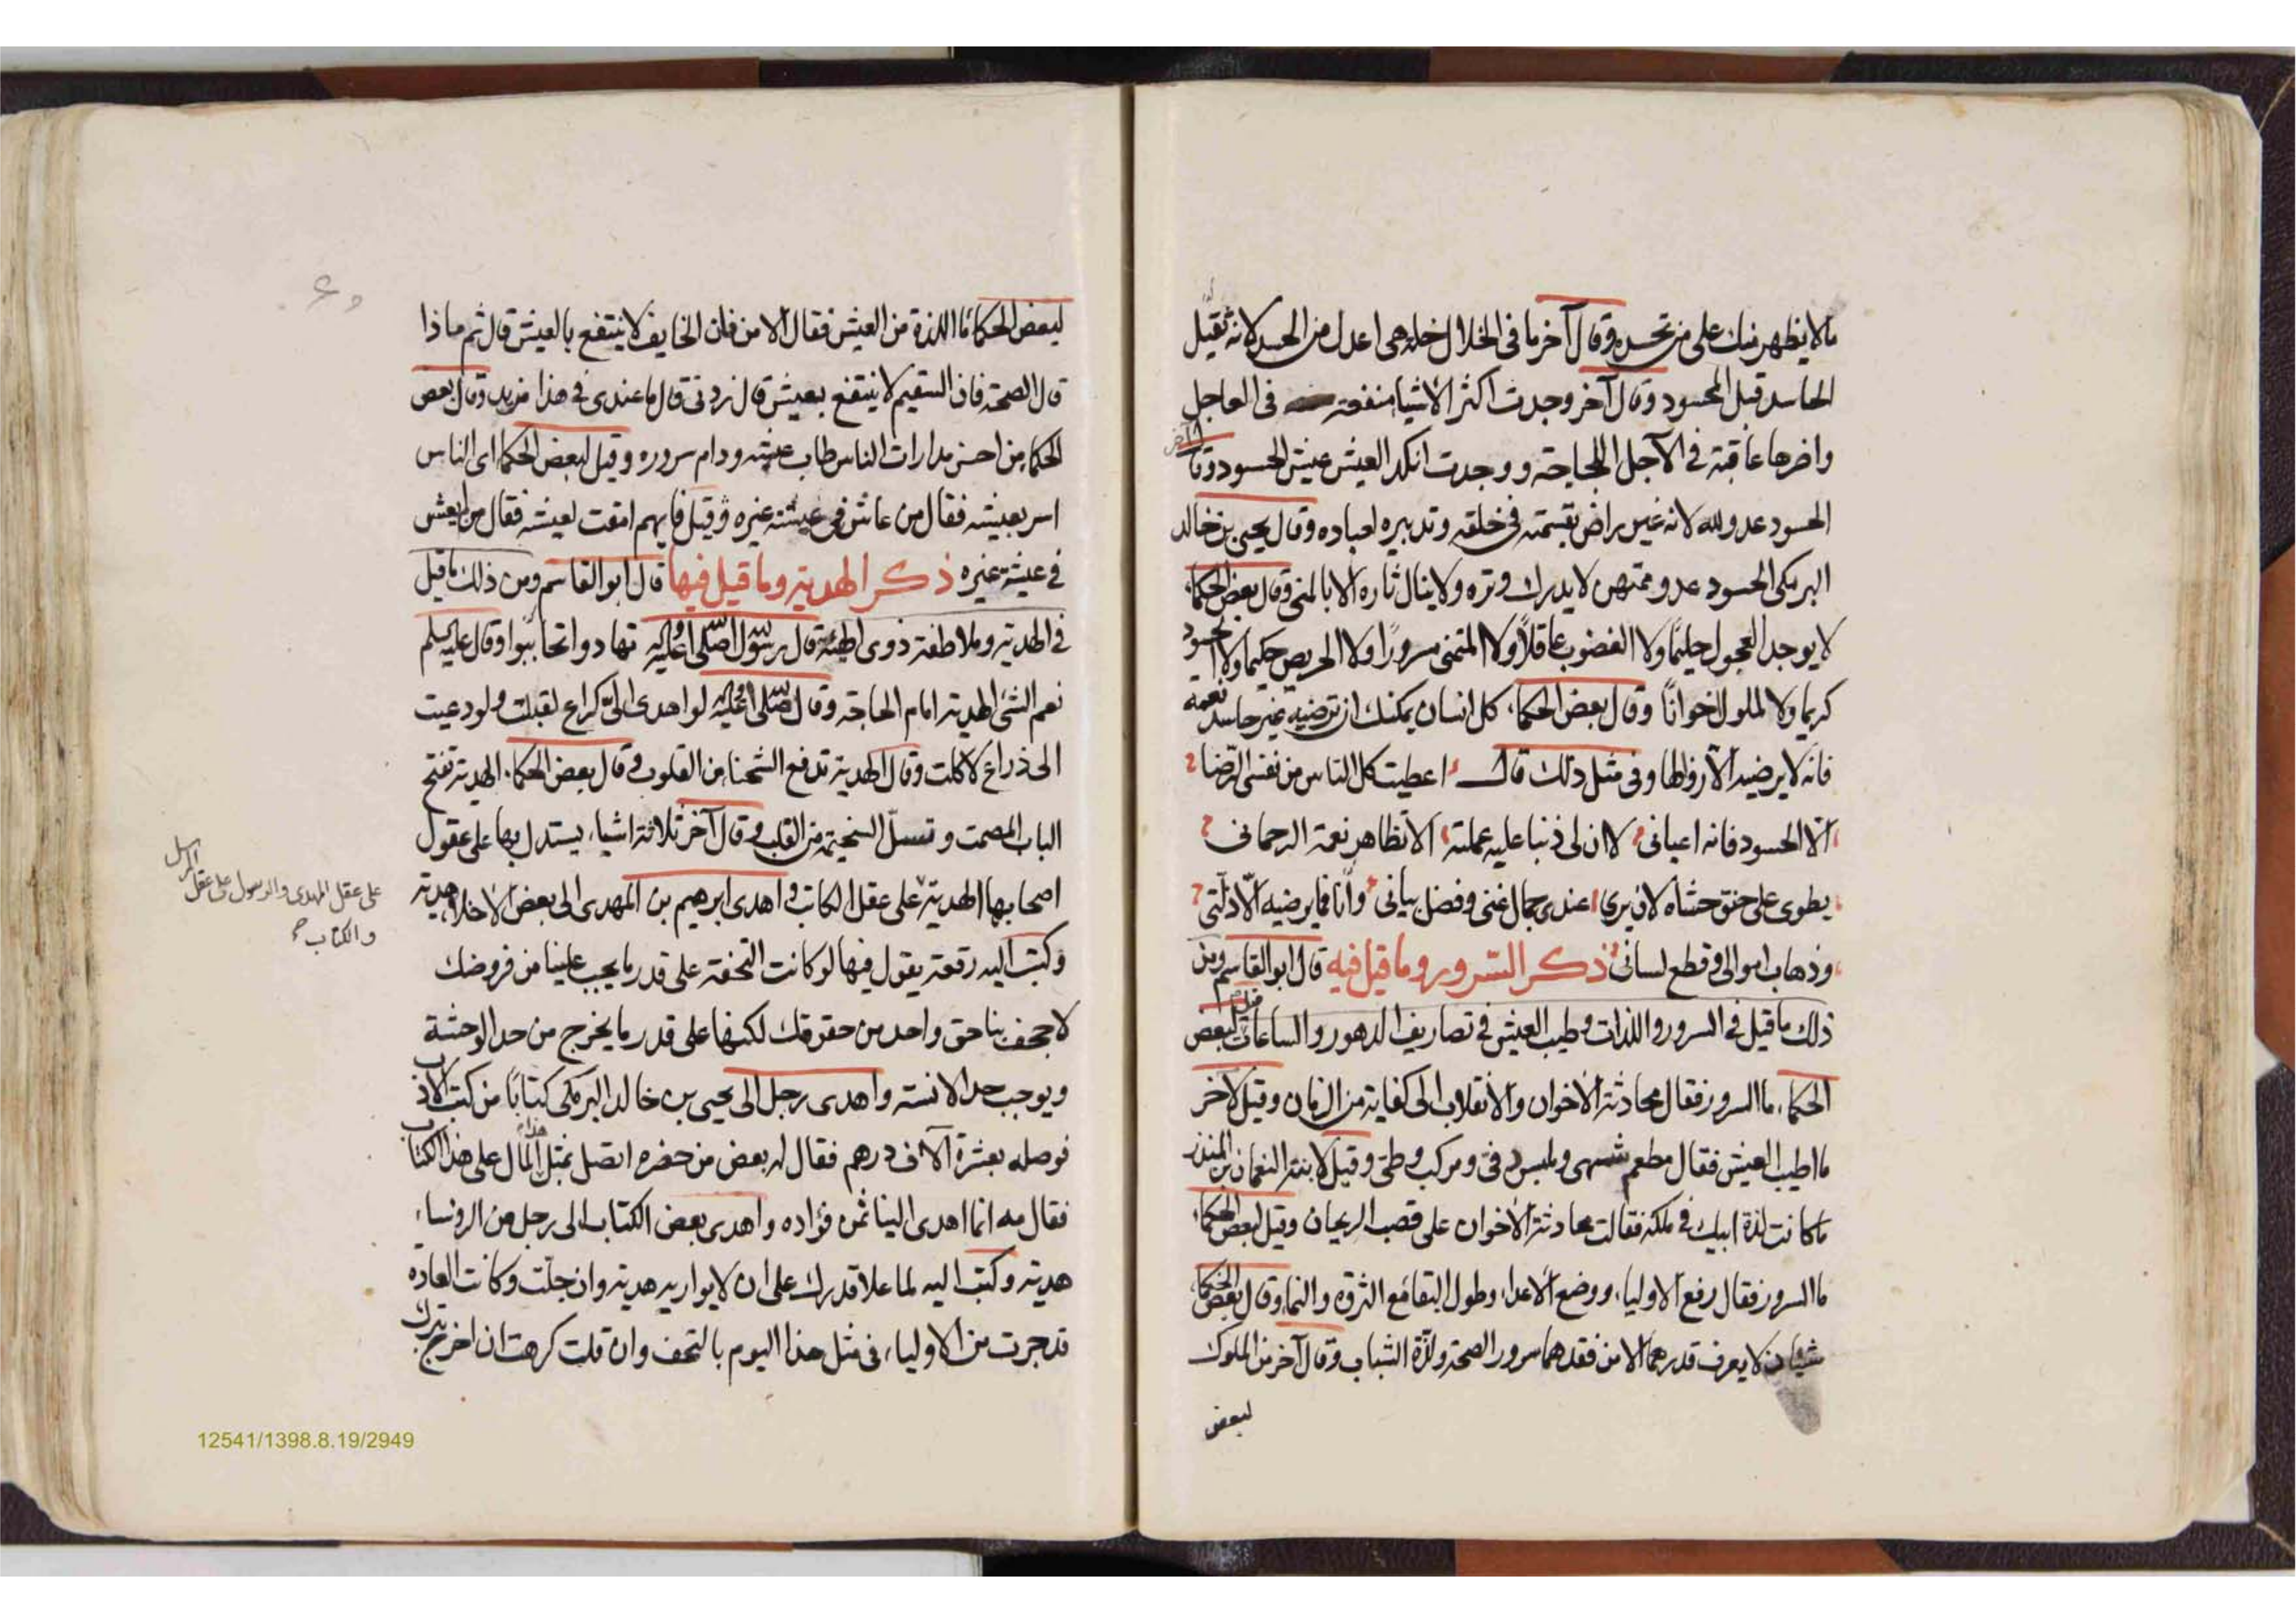 ما لا يظهر منك على من تحسده وقال آخر ما في الخلال خلة هي اعدل من الحسد لانه يقتل
الحاسد قبل المحسود وقال آخر وجدت اكثر الاشيا منفعته في العاجل
واضرها عاقبة في الآجل اللجاجة ووجدت انكد العيش عيش الحسود وقال آخر
الحسود عدو لله لانه غير راض بقسمته في خلقه وتدبيره لعباده وقال يحيى بن خالد
البرمكي الحسود عدو ممتهن لا يدرك وتره ولا ينال ثاره الا بالمنى وقال بعض الحكماء
لا يوجد العجول حليما ولا الغضوب عاقلاً ولا المتمنى مسروراً ولا الحريص حكيما ولا الحسود
كريما ولا الملول اخوانًا وقال بعض الحكماء كل انسان يمكنك ان ترضيه غير حاسد نعمة
فانه لا يرضيه الا زوالها وفى مثل ذلك قال اعطيت كل الناس من نفسى الرضا
الا الحسود فانه اعيانى لا ان لى ذنبا عليه عملته الا تظاهر نعمة الرحمانى
يطوى على حنق حشاه لان يرى عندى جمال غنى وفضل بيانى وأنا فما يرضيه الّا ذلّتى
وذهاب اموالى وقطع لسانى ذكر السرور وما قيل فيه قال ابو القاسم ومن
ذلك ما قيل في السرور واللذات وطيب العيش في تصاريف الدهور والساعات قيل لبعض
الحكماء ما السرور فقال محادثة الاخوان والانقلاب الى كفاية من الزمان وقيل لآخر
ما اطيب العيش فقال مطعم شهى وملبس دفى ومركب وطى وقيل لابنة النعمان بن المنذر
ما كانت لذة ابيك في ملكه فقالت محادثة الاخوان على قصب الريحان وقيل لبعض الحكماء
ما السرور فقال رفع الاولياء ووضع الاعداء وطول البقا مع الثروة والنما وقال بعض الحكما
شيئان لا يعرف قدرهما الا من فقدهما سرور الصحة ولذّة الشباب وقال آخر من الملوك
لبعض
لبعض الحكما ما اللذة من العيش فقال الامن فان الخايف لا ينتفع بالعيش قال ثم ماذا
قال الصحة فان السقيم لا ينتفع بعيش قال زدنى قال ما عندى في هذا مزيد وقال بعض
الحكما من احسن مدارات الناس طاب عيشه ودام سروره وقيل لبعض الحكما اى الناس
اسر بعيشه فقال من عاش في عيشته غيره وقيل فايهم امقت لعيشه فقال من لم يعش
في عيشته غيره ذكر الهدية وما قيل فيها قال ابو القاسم ومن ذلك ما قيل
في الهدية وملاطفة ذوى الهيئة قال رسول الله صلى الله عليه وآله تهادوا تحابّبوا وقال عليه السلم
نعم الشئ الهدية امام الحاجة وقال صلى الله عليه لو اهدى الىّ كراع لقبلت ولو دعيت
الى ذراع لاكلت وقال الهدية تدفع الشحنا من القلوب وقال بعض الحكما الهدية تفتح
الباب المصمت وتسلّ السخيمة من القلب وقال آخر ثلاثة اشياء يستدل بها على عقول
اصحابها الهدية على عقل الكاتب واهدى ابرهيم بن المهدى الى بعض الاخلاء هدية
على عقل المهدى والرسول على عقل المرسل
والكتاب
وكتب اليه رقعة يقول فيها لو كانت التحفة على قدر ما يجب علينا من فروضك
لاجحف بنا حق واحد من حقوقك لكنها على قدر ما يخرج من حد الوحشة
ويوجب حد الانسة واهدى رجل الى يحيى بن خالد البرمكى كتابًا من كتب الادب
فوصله بعشرة آلاف درهم فقال له بعض من حضره اتصل بمثل هذا المال على هذا الكتاب
فقال مه انما اهدى الينا ثمرة فؤاده واهدى بعض الكتاب الى رجل من الروساء
هدية وكتب اليه لما علا قدرك على ان لا يوازيه هدية وان جلّت وكانت العادة
قد جرت من الاولياء في مثل هذا اليوم بالتحف وان قلت كرهت ان اخرج بترك
12541/1398.8.19/2949